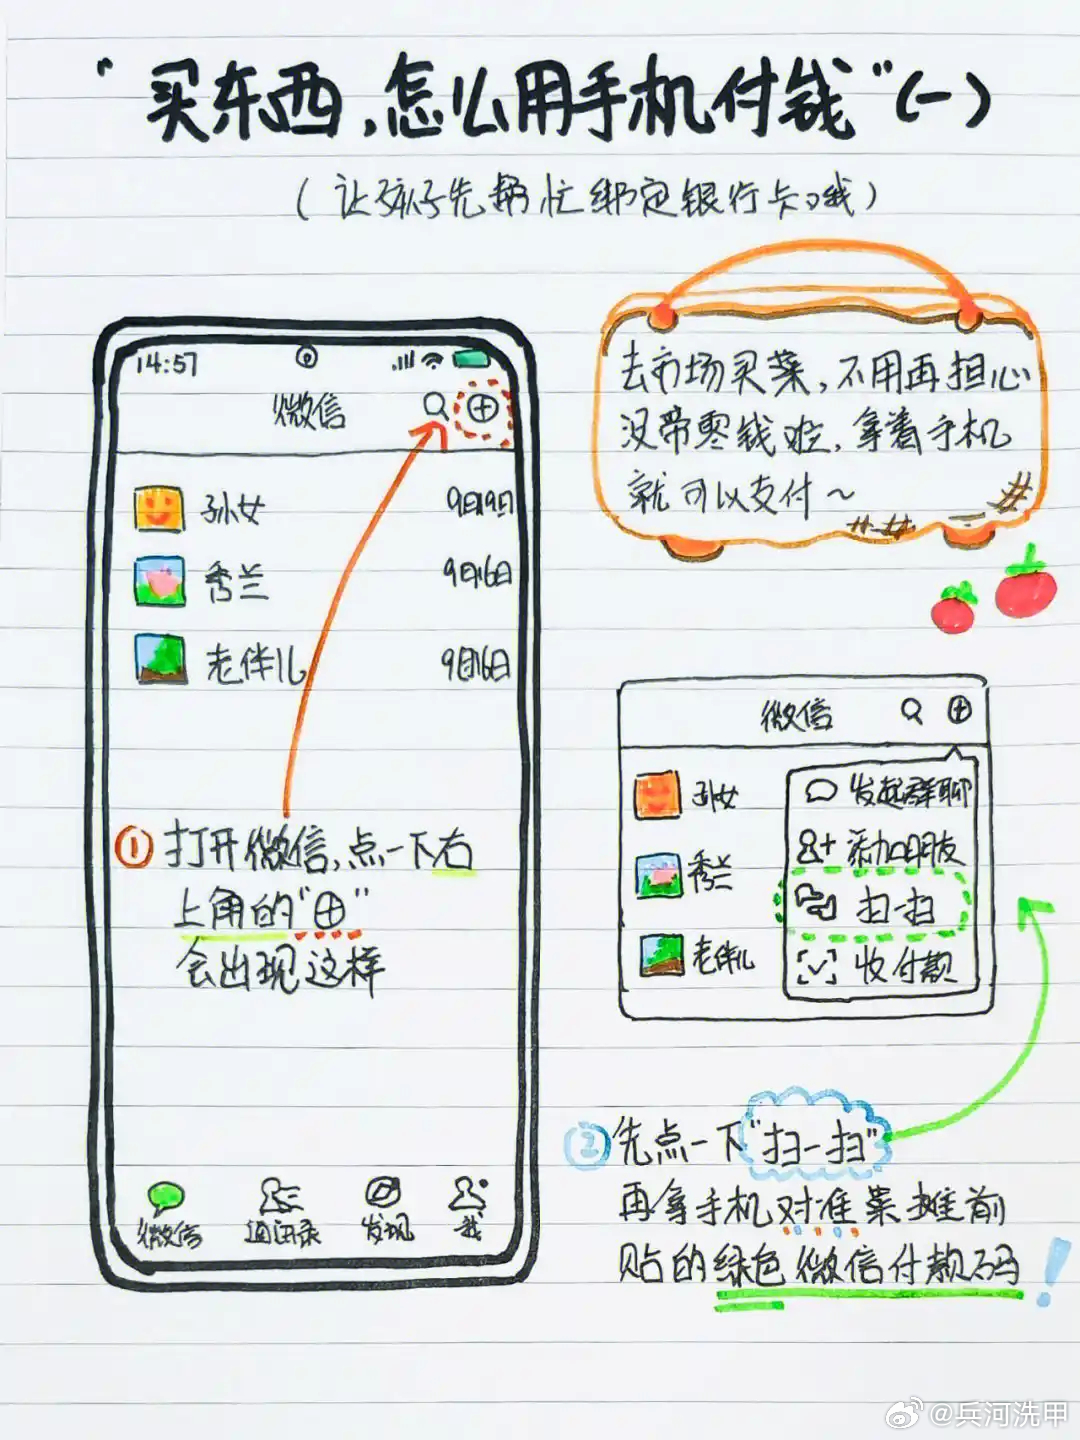 “买东西，怎么用手机付钱”(一)
(让孩子先帮忙绑定银行卡哦)
14:57
微信
孙女 9月19日
秀兰 9月16日
老伴儿 9月16日
①打开微信，点一下右
上角的“⊕”
会出现这样
微信 通讯录 发现 我
去市场买菜，不用再担心
没带零钱啦，拿着手机
就可以支付~
微信
孙女
秀兰
老伴儿
发起群聊
添加朋友
扫一扫
收付款
②先点一下“扫一扫”
再拿手机对准菜摊前
贴的绿色微信付款码！
@兵河洗甲